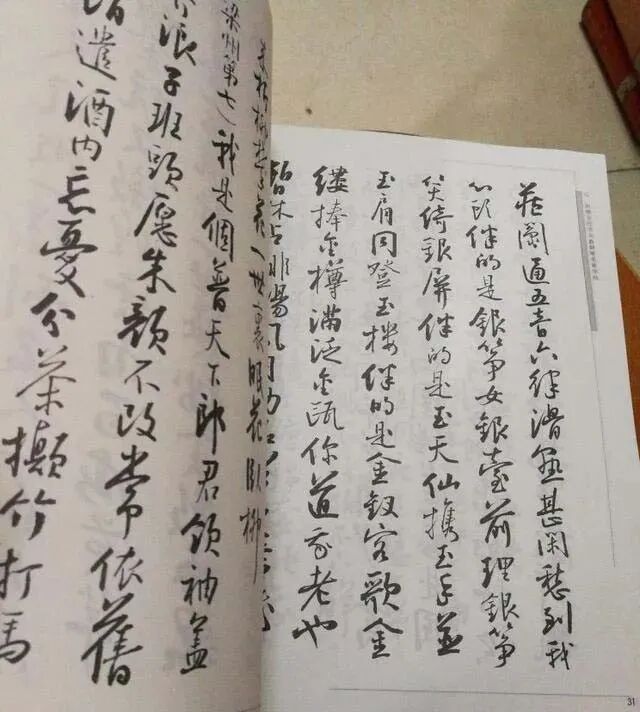 一世裏眠花臥柳
梁州第七 我是個普天下郎君領袖蓋
界浪子班頭愿朱顏不改常依舊
消遣酒内忘憂分茶攧竹打馬
藏鬮通五音六律滑熟甚閑愁到我
心頭伴的是銀箏女銀臺前理銀箏
笑倚銀屏伴的是玉天仙携玉手並
玉肩同登玉楼伴的是金釵客歌金
縷捧金樽满泛金甌你道我老也
暫休占排場風月功名
31